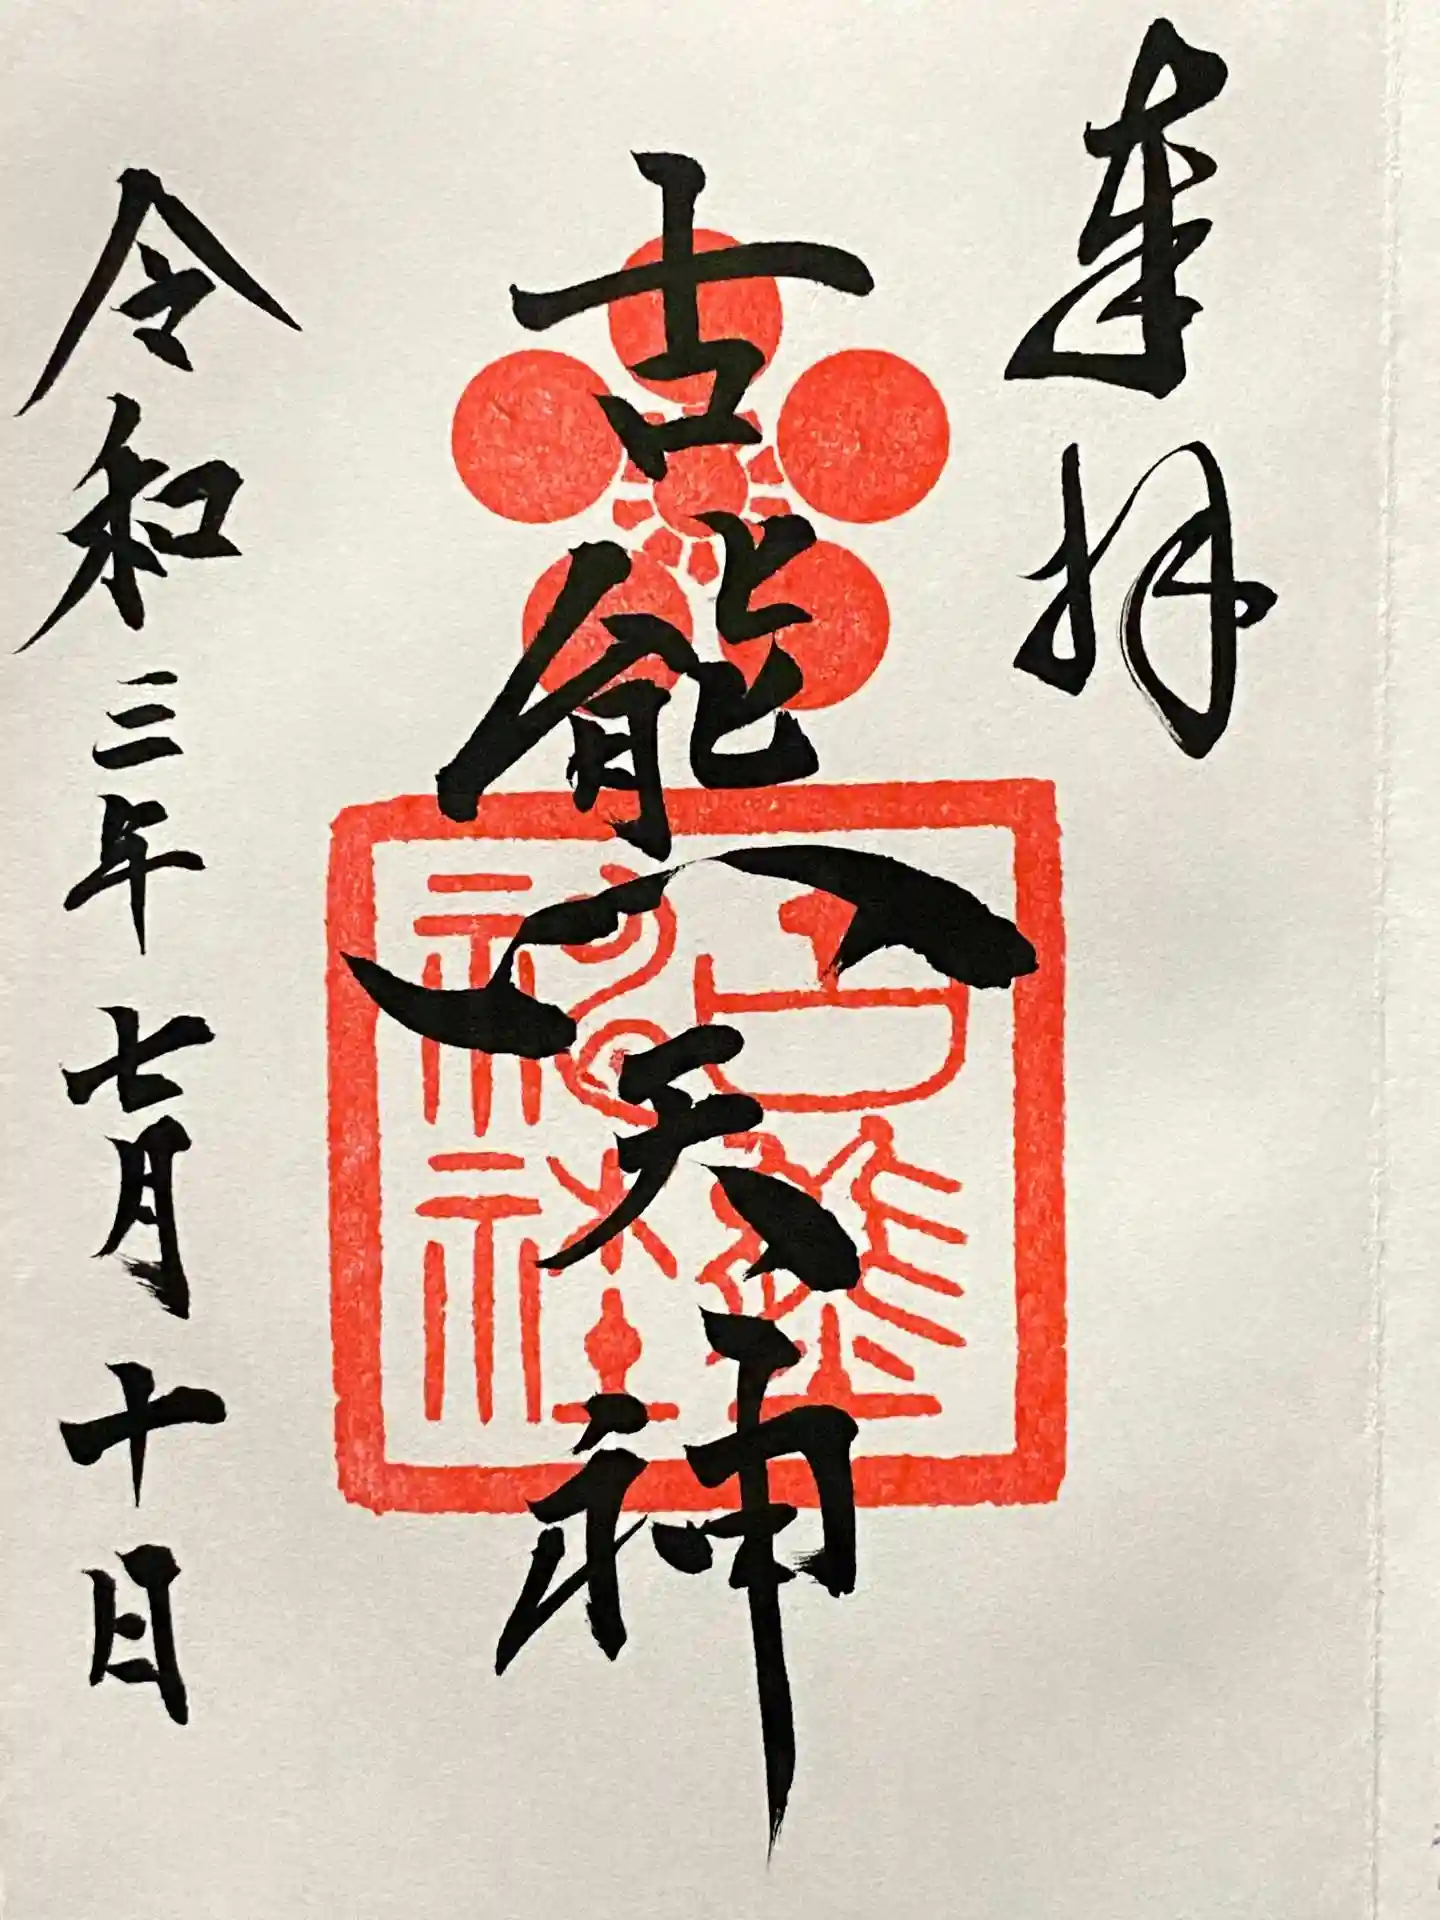 奉拝
古熊天神
令和三年七月十日
古熊
神社